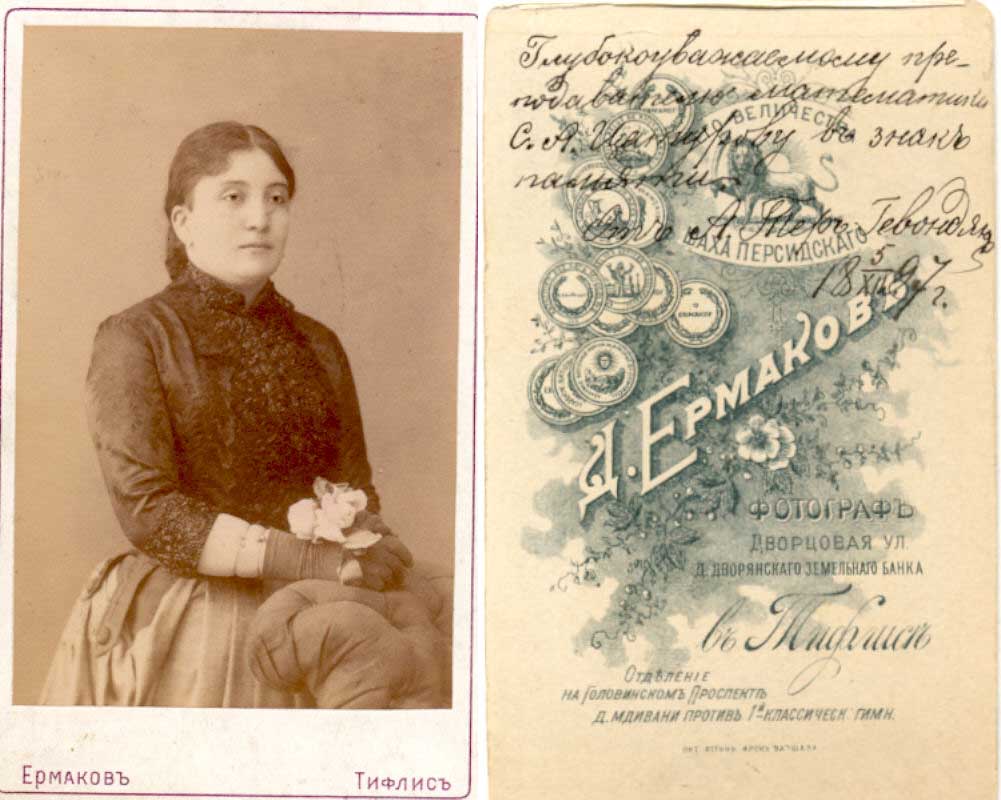 Ермаковъ
Тифлисъ
Глубокоуважаемому пре-
подавателю математики
С. А. въ знакъ
памяти
отъ А. Теръ Гевондянъ
18 5/XII 97 г.
ВЕЛИЧЕСТВ
ШАХА ПЕРСИДСКАГО
Д. ЕРМАКОВЪ
ФОТОГРАФЪ
ДВОРЦОВАЯ УЛ.
Д. ДВОРЯНСКАГО ЗЕМЕЛЬНАГО БАНКА
въ Тифлисѣ
ОТДѢЛЕНІЕ
НА ГОЛОВИНСКОМЪ ПРОСПЕКТѢ
Д. МДИВАНИ ПРОТИВЪ 1й КЛАССИЧЕСК ГИМН.